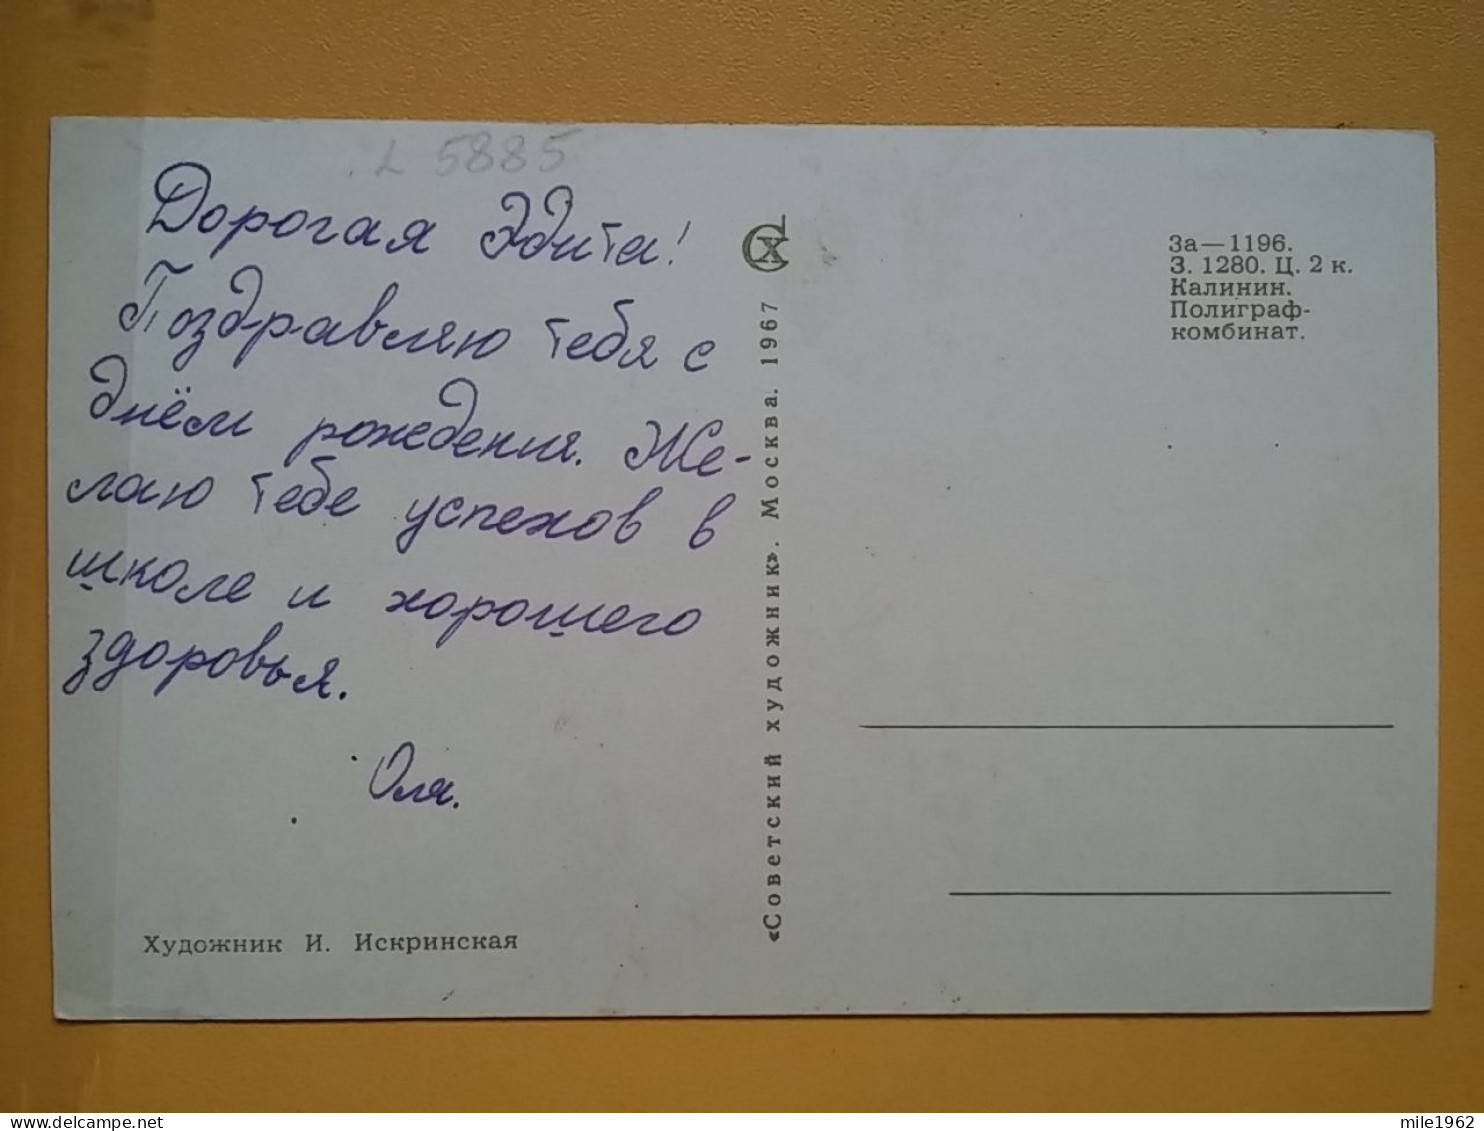 L 5885
Дорогая Эдита!
Поздравляю тебя с
днём рождения. Же-
лаю тебе успехов в
школе и хорошего
здоровья.
Оля.
Художник И. Искринская
«Советский художник». Москва. 1967
СХ
За—1196.
З. 1280. Ц. 2 к.
Калинин.
Полиграф-
комбинат.
mile1962